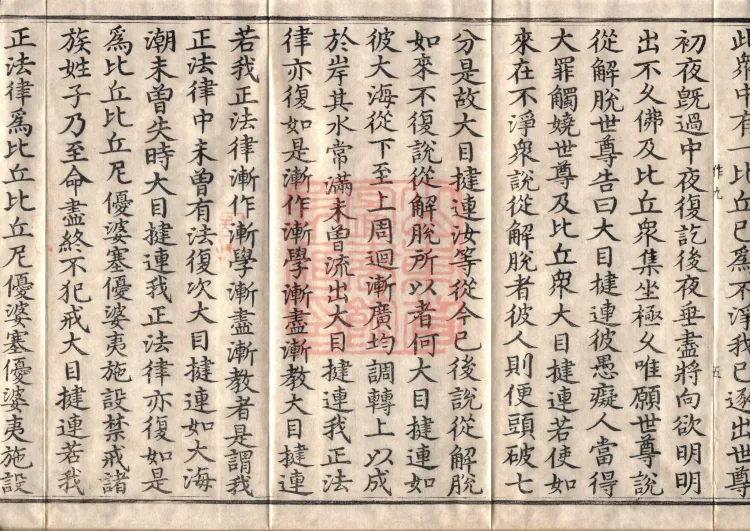 此衆中有一比丘已爲不淨我已逐出世尊
作九
五
初夜既過中夜復訖後夜垂盡將向欲明明
出不久佛及比丘衆集坐極久唯願世尊說
從解脫世尊告曰大目揵連彼愚癡人當得
大罪觸嬈世尊及比丘衆大目揵連若使如
來在不淨衆說從解脫者彼人則便頭破七
分是故大目揵連汝等從今已後說從解脫
如來不復說從解脫所以者何大目揵連如
彼大海從下至上周迴漸廣均調轉上以成
於岸其水常滿未曾流出大目揵連我正法
律亦復如是漸作漸學漸盡漸教大目揵連
若我正法律漸作漸學漸盡漸教者是謂我
正法律中未曾有法復次大目揵連如大海
潮未曾失時大目揵連我正法律亦復如是
爲比丘比丘尼優婆塞優婆夷施設禁戒諸
族姓子乃至命盡終不犯戒大目揵連若我
正法律爲比丘比丘尼優婆塞優婆夷施設